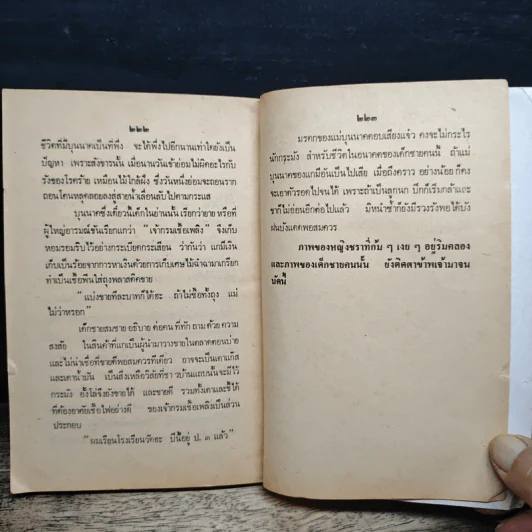 ๒๒๒
ชีวิตที่มีบุนนาคเป็นที่พึ่ง จะได้พึ่งไปอีกนานเท่าใดยังเป็น
ปัญหา เพราะสังขารนั้น เมื่อนานวันเข้าย่อมไม่ผิดอะไรกับ
รังของโรคร้าย เหมือนไม้ใกล้ฝั่ง ซึ่งวันหนึ่งย่อมจะถอนราก
ถอนโคนหลุดลอยลงสู่สายน้ำเลื่อนลับไปตามกระแส
บุนนาคซึ่งเดี๋ยวนี้เด็กในย่านนั้น เรียกว่ายาย หรือที่
ผู้ใหญ่อารมณ์ขันเรียกแกว่า “เจ้ากรมเชื้อเพลิง” จึงเก็บ
หอมรอมริบได้อย่างกระเบียดกระเสียน ว่ากันว่า แกมีเงิน
เก็บเป็นร้อยจากการหาเงินด้วยการเก็บเศษไม้ฉำฉามาเกรียก
ทำเป็นเชื้อฟืนใส่ถุงพลาสติคขาย
“แบ่งขายทีละบาทก็ได้ฮะ ถ้าไม่ซื้อทั้งถุง แม่
ไม่ว่าหรอก”
เด็กชายสมชาย อธิบาย ต่อคน ที่ทัก ถาม ด้วย ความ
สงสัย ในสินค้าที่แกเป็นผู้นำมาวางขายในตลาดตอนบ่าย
และไม่น่าเชื่อที่ขายดีพอสมควรทีเดียว อาจจะเป็นเตาแก๊ส
และเตาน้ำมัน เป็นสิ่งเหลือวิสัยที่ชาวบ้านแถบนั้นจะมีไว้
กระมัง อั้งโล่จึงยังขายได้ และขายดี รวมทั้งเตาและขี้ไต้
ที่ต้องอาศัยเชื้อไฟอย่างดี ของเจ้ากรมเชื้อเพลิงเป็นส่วน
ประกอบ
“ผมเรียนโรงเรียนวัดฮะ ปีนี้อยู่ ป. ๓ แล้ว”
๒๒๓
มรดกของแม่บุนนาคตอบเสียงแจ๋ว คงจะไม่กระไร
นักกระมัง สำหรับชีวิตในอนาคตของเด็กชายคนนี้ ถ้าแม่
บุนนาคของแกมีอันเป็นไปเสีย เมื่อถึงคราว อย่างน้อย ก็คง
จะเอาตัวรอดไปจนได้ เพราะถ้าเป็นลูกนก ปีกก็เริ่มกล้าและ
ขาก็ไม่อ่อนอีกต่อไปแล้ว มิหนำซ้ำก็ยังมีรวงรังพอได้บัง
ฝนบังแดดพอสมควร
ภาพของหญิงชราที่ก้ม ๆ เงย ๆ อยู่ริมคลอง
และภาพของเด็กชายคนนั้น ยังติดตาข้าพเจ้ามาจน
บัดนี้